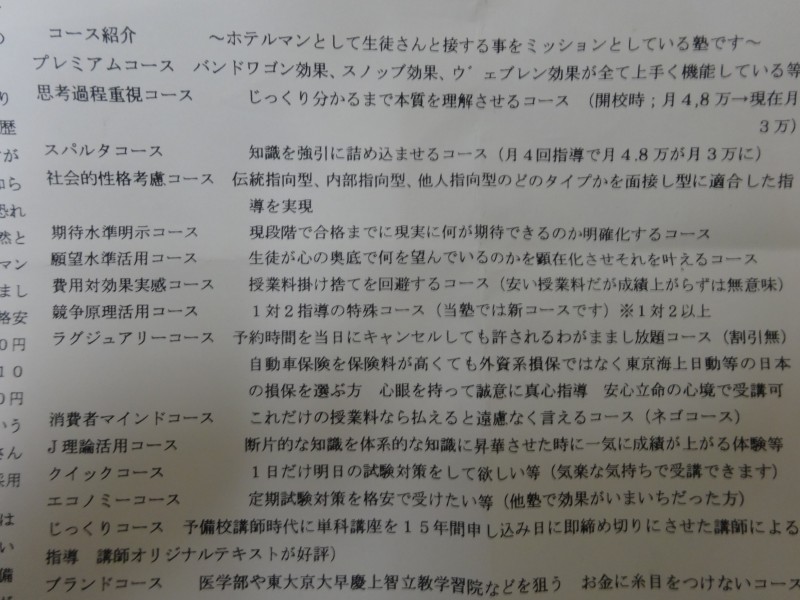 コース紹介　～ホテルマンとして生徒さんと接する事をミッションとしている塾です～
プレミアムコース　バンドワゴン効果、スノッブ効果、ヴェブレン効果が全て上手く機能している等
思考過程重視コース　じっくり分かるまで本質を理解させるコース　（開校時；月４,８万→現在月
３万）
スパルタコース　知識を強引に詰め込ませるコース（月４回指導で月４.８万が月３万に）
社会的性格考慮コース　伝統指向型、内部指向型、他人指向型のどのタイプかを面接し型に適合した指
導を実現
期待水準明示コース　現段階で合格までに現実に何が期待できるのか明確化するコース
願望水準活用コース　生徒が心の奥底で何を望んでいるのかを顕在化させそれを叶えるコース
費用対効果実感コース　授業料掛け捨てを回避するコース（安い授業料だが成績上がらずは無意味）
競争原理活用コース　１対２指導の特殊コース（当塾では新コースです）※１対２以上
ラグジュアリーコース　予約時間を当日にキャンセルしても許されるわがまましし放題コース（割引無）
自動車保険を保険料が高くても外資系損保ではなく東京海上日動等の日本
の損保を選ぶ方　心眼を持って誠意に真心指導　安心立命の心境で受講可
消費者マインドコース　これだけの授業料なら払えると遠慮なく言えるコース（ネゴコース）
Ｊ理論活用コース　断片的な知識を体系的な知識に昇華させた時に一気に成績が上がる体験等
クイックコース　１日だけ明日の試験対策をして欲しい等（気楽な気持ちで受講できます）
エコノミーコース　定期試験対策を格安で受けたい等（他塾で効果がいまいちだった方）
じっくりコース　予備校講師時代に単科講座を１５年間申し込み日に即締め切りにさせた講師による
指導　講師オリジナルテキストが好評）
ブランドコース　医学部や東大京大早慶上智立教学習院などを狙う　お金に糸目をつけないコース